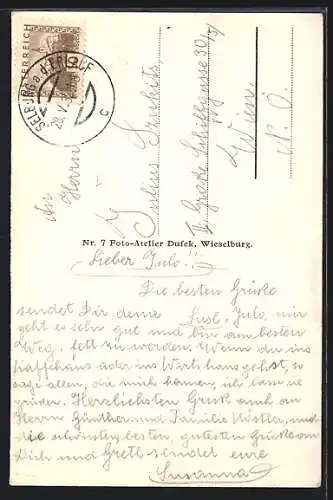 ÖSTERREICH
SELBURG a.d. ERLAUF
28. V.
c
An
Herrn
Julius
II Große Schiffgasse 30
Wien
N. Ö.
Nr. 7 Foto-Atelier Dufek, Wieselburg.
Lieber Julo!!
Die besten Grüße
sendet Dir deine Susl, Julo, mir
geht es sehr gut und bin am besten
Weg, fett zu worden. Wenn du ins
Kaffehaus oder ins Wirtshaus gehst, so
sage allen, die mich kennen, ich lasse sie
grüßen. Herzlichsten Gruß auch an
Herrn Günther und Familie und
die schönsten, besten, gutesten Grüße an
Dich und Gretl sendet eure
Susanna